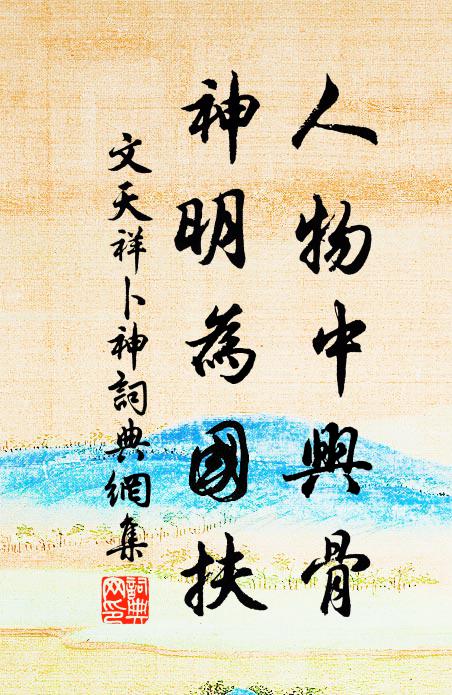 人物中興骨
神明為國扶
文天祥卜神詞典網集
詞典
網印